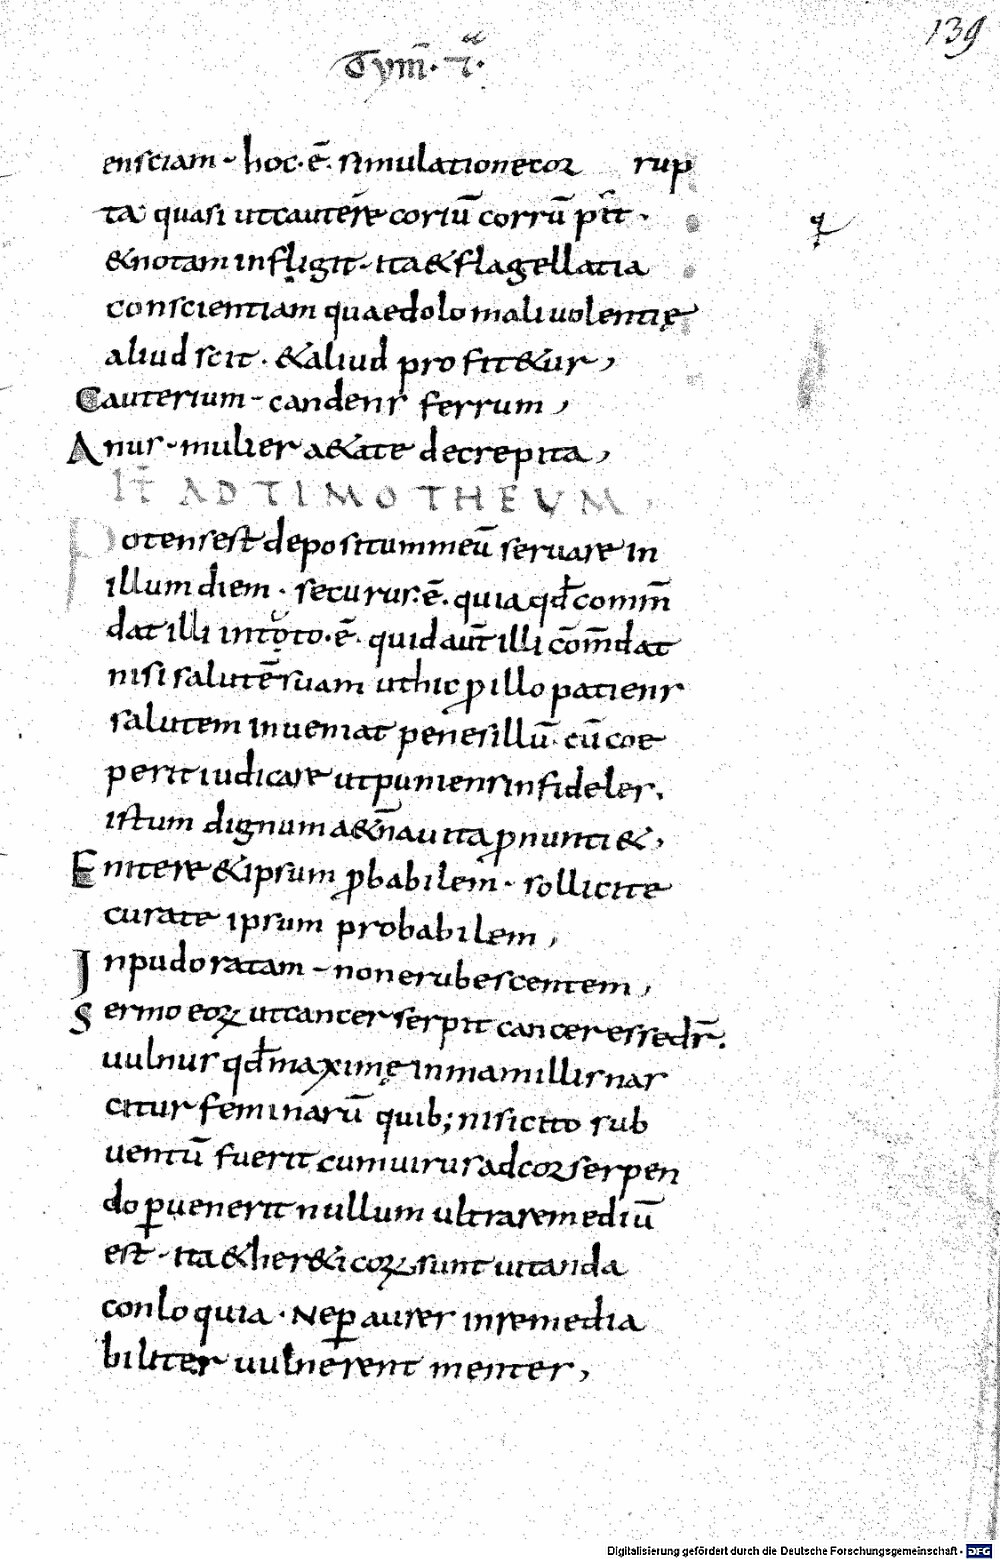 139
Tym̄. ı̄a.
ensciam - hoc·ē· simulationecor rup
ta quasi utcauterẽ coriū corrū pit·
&notam infligit - ita&flagellatia
conscientiam quaedolo maliuolentię
aliud scit · &aliud profit&ur,
Cauterium - candens ferrum,
Anus - mulier a&ate decrepita,
IT̄ AD TIMOTHEUM,
Potensest depositummeū seruare in
illum diem · securus·ē· quia qđ com̄m
dat illi intoto·ē· quid aut̄ illi cōm̄dat
nisi salutē suam uthic ꝓ illo patiens
salutem inueniat penesillū· cū coe
perit iudicare utpuniensinfideles.
istum dignum a&n̄a uita ꝓnunti&,
Enitere &ipsum ꝓbabilem - sollicite
curate ipsum probabilem,
Inpudoratam - nonerubescentem,
Sermo eoꝝ utcancer serpit cancer essedr̄.
uulnus qđ maximę inmamillis nas
citur feminarū quib; nisicito sub
uentū fuerit cumuirus adcor serpen
do ꝑuenerit nullum ultraremediū
est - ita &her&icoꝝ sunt uitanda
conloquia · Neꝑ aures inremedia
biliter uulnerent mentes,
Digitalisierung gefördert durch die Deutsche Forschungsgemeinschaft - DFG